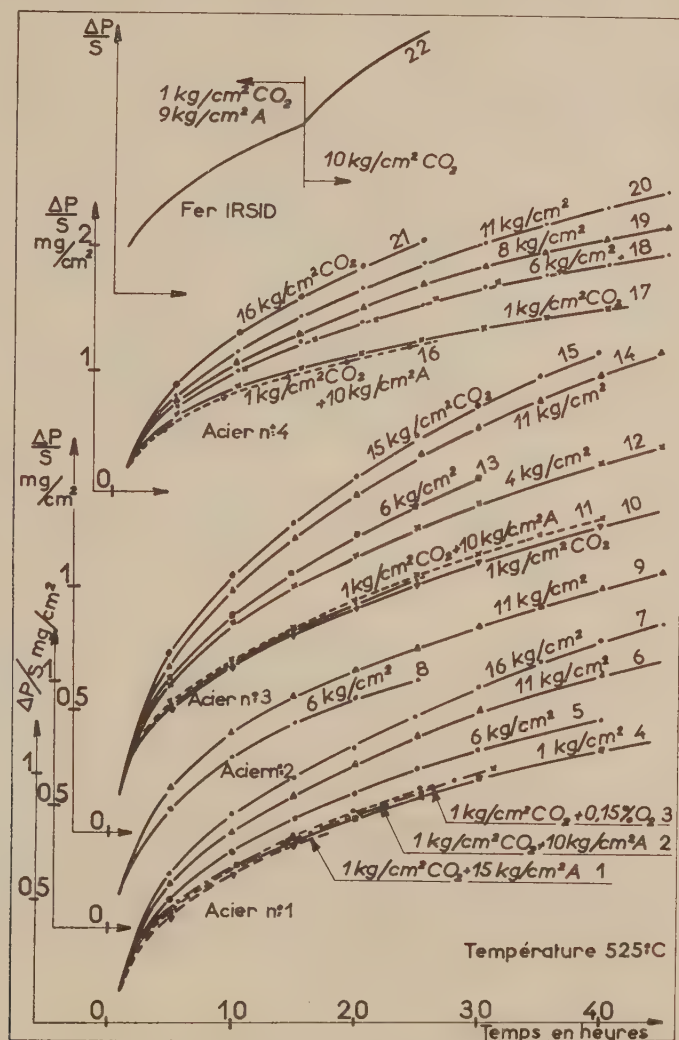 ΔP
S
22
1 kg/cm² CO₂
9 kg/cm² A
10 kg/cm² CO₂
Fer IRSID
ΔP
S
mg/cm²
2
1
0
21
16 kg/cm² CO₂
11 kg/cm²
20
8 kg/cm²
19
6 kg/cm²
18
1 kg/cm² CO₂
17
16
1 kg/cm² CO₂
+10 kg/cm² A
Acier n°4
ΔP
S
mg/cm²
1
0,5
0
15 kg/cm² CO₂
15
11 kg/cm²
14
6 kg/cm²
13
4 kg/cm²
12
1 kg/cm² CO₂+10 kg/cm² A
11
1 kg/cm² CO₂
10
Acier n°3
ΔP/S mg/cm²
1
0,5
0
11 kg/cm²
9
6 kg/cm²
8
Acier n°2
1
0,5
16 kg/cm²
7
11 kg/cm²
6
6 kg/cm²
5
1 kg/cm²
4
1 kg/cm² CO₂+0,15% O₂ 3
1 kg/cm² CO₂+10 kg/cm² A 2
1 kg/cm² CO₂+15 kg/cm² A 1
Acier n°1
Température 525°C
0
1,0
2,0
3,0
4,0
Temps en heures